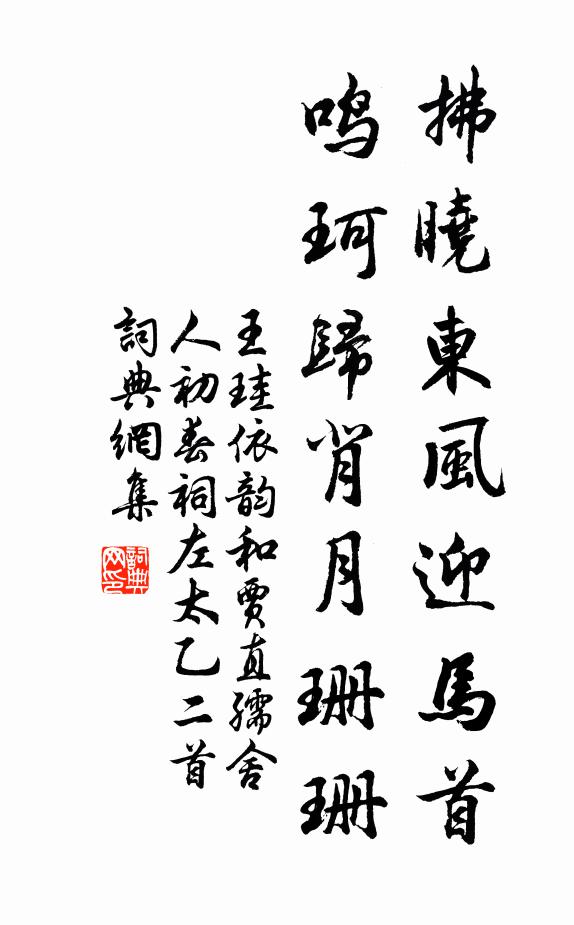 拂曉東風迎馬首
鳴珂歸背月珊珊
王珪依韵和賈直孺舍
人初春祠左太乙二首
詞典網集
詞典
网印